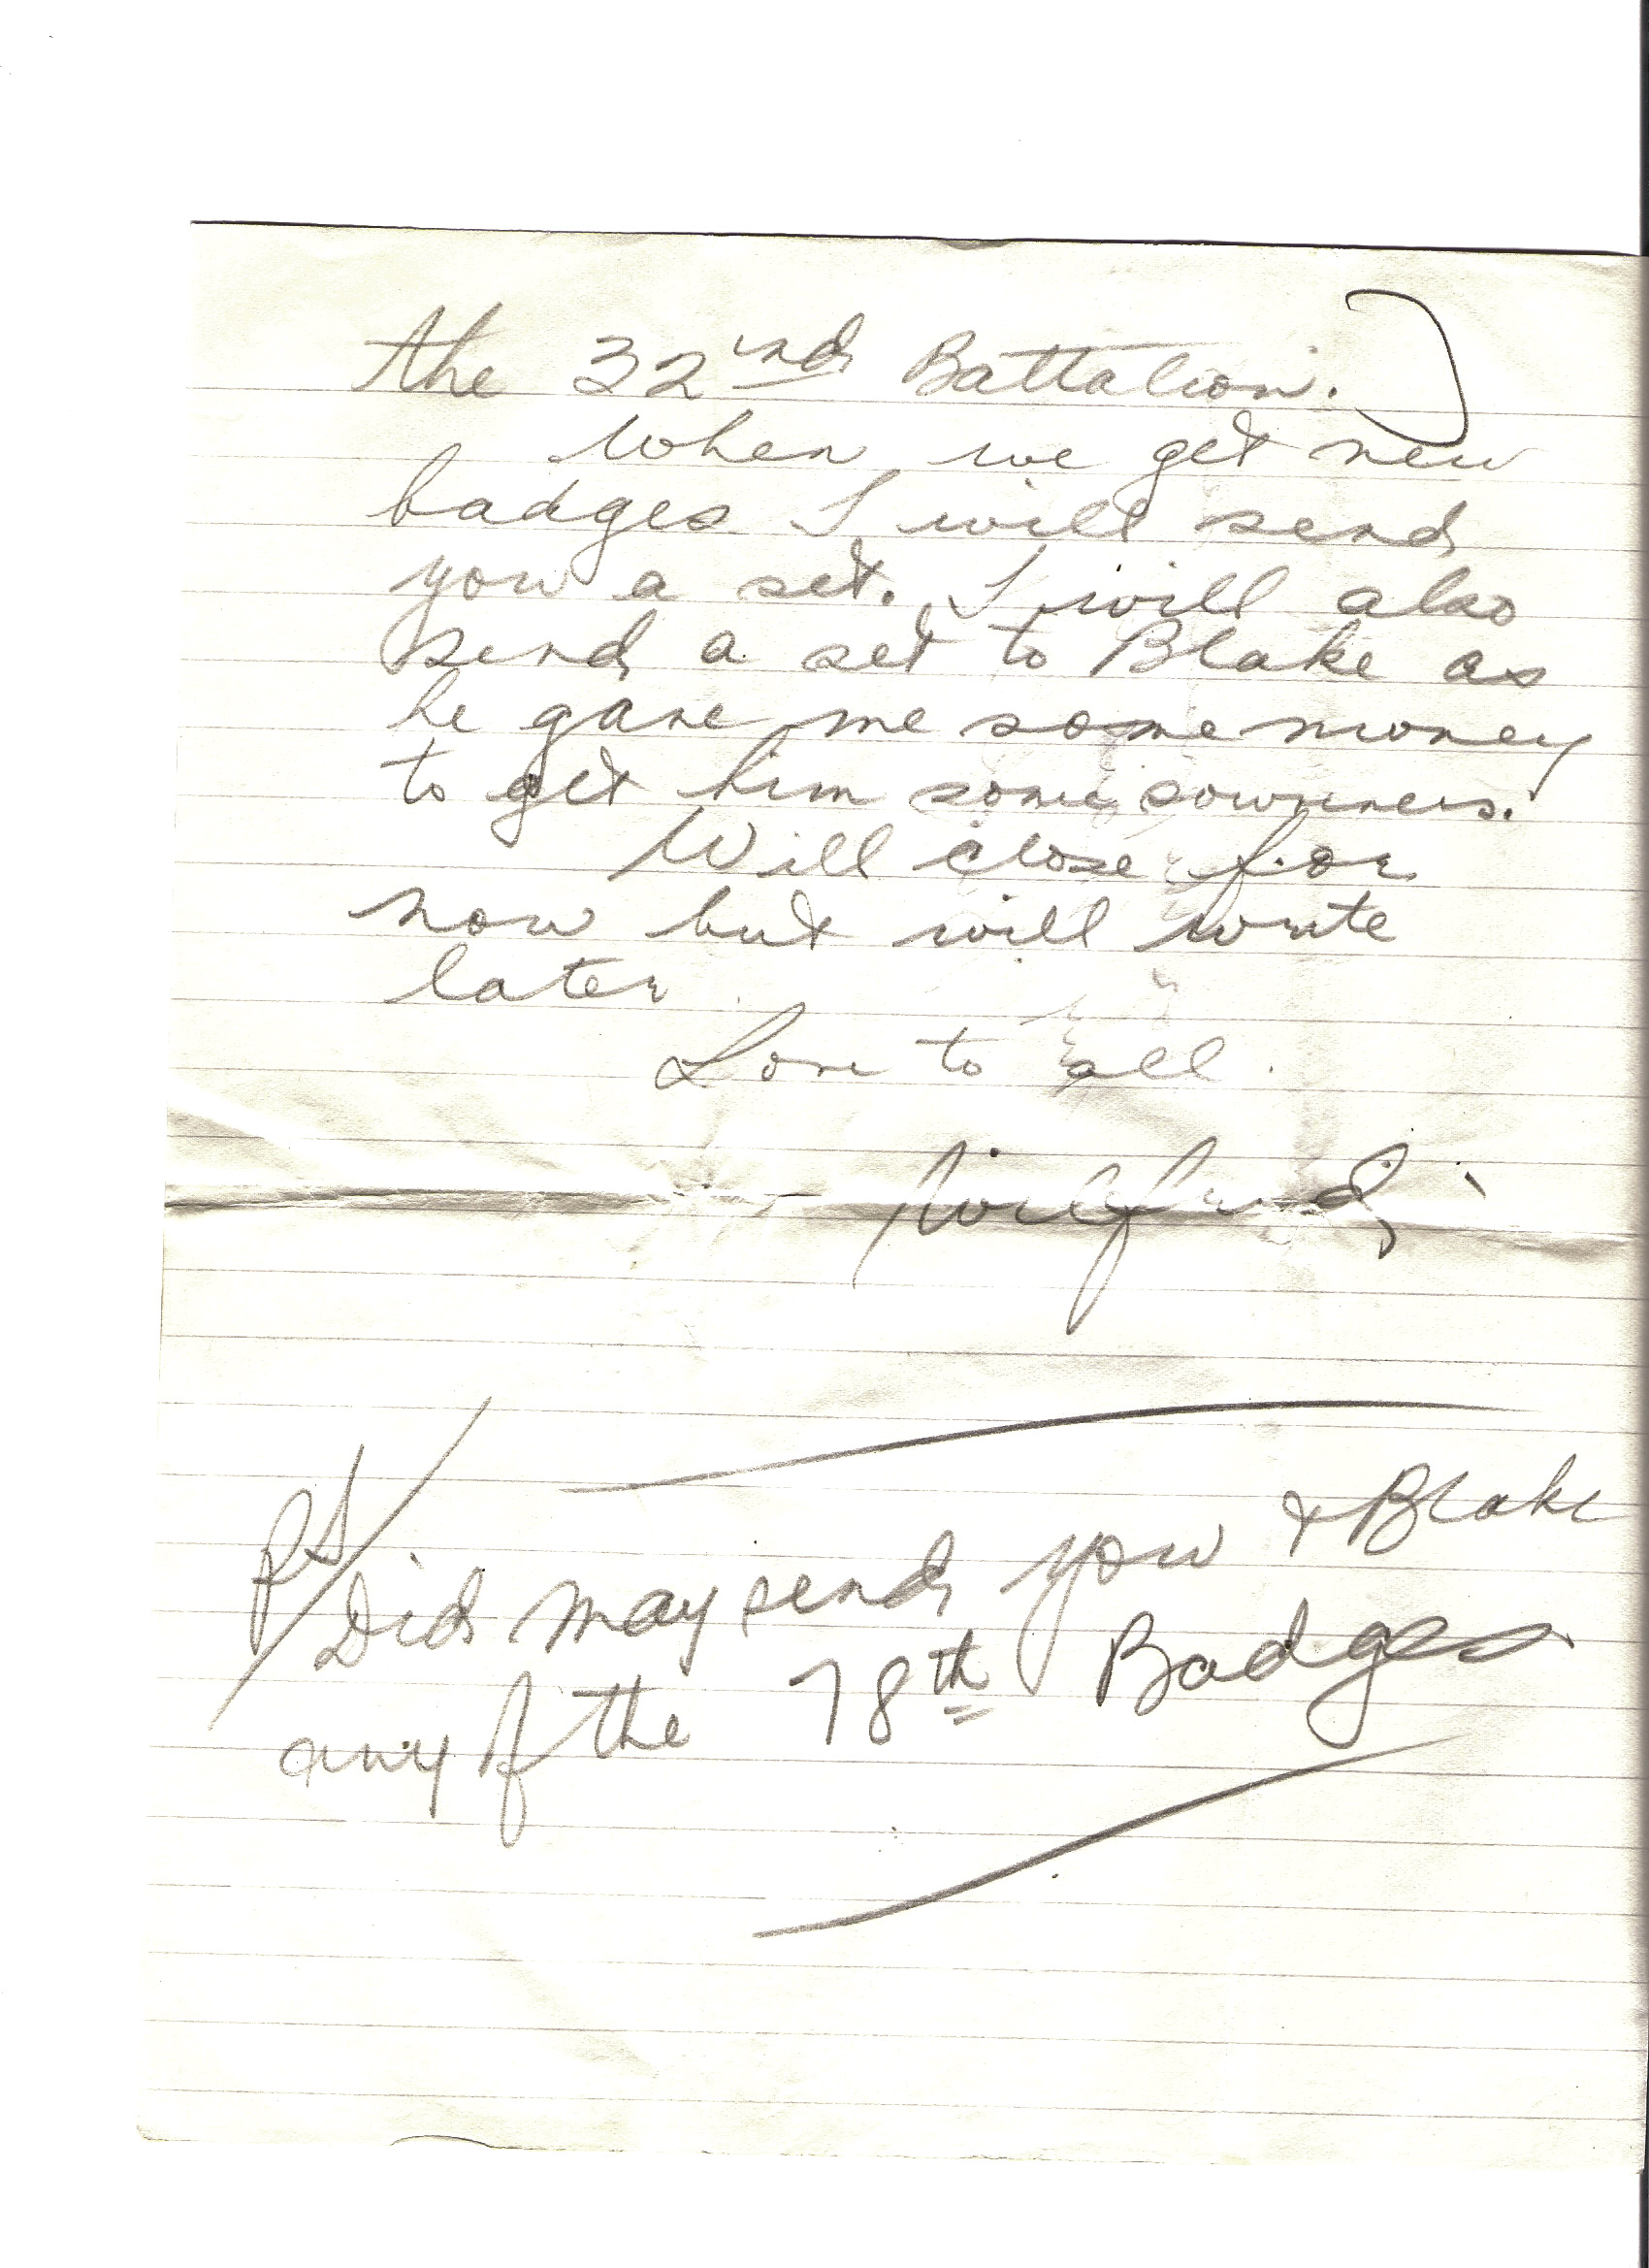 the 32nd Battalion.
When we get new
badges I will send
you a set. I will also
send a set to Blake as
he gave me some money
to get him some souvners.
Will close for
now but will write
later
Love to all.
Wilfred.
PS/
Did May send you & Blake
any of the 78th Badges